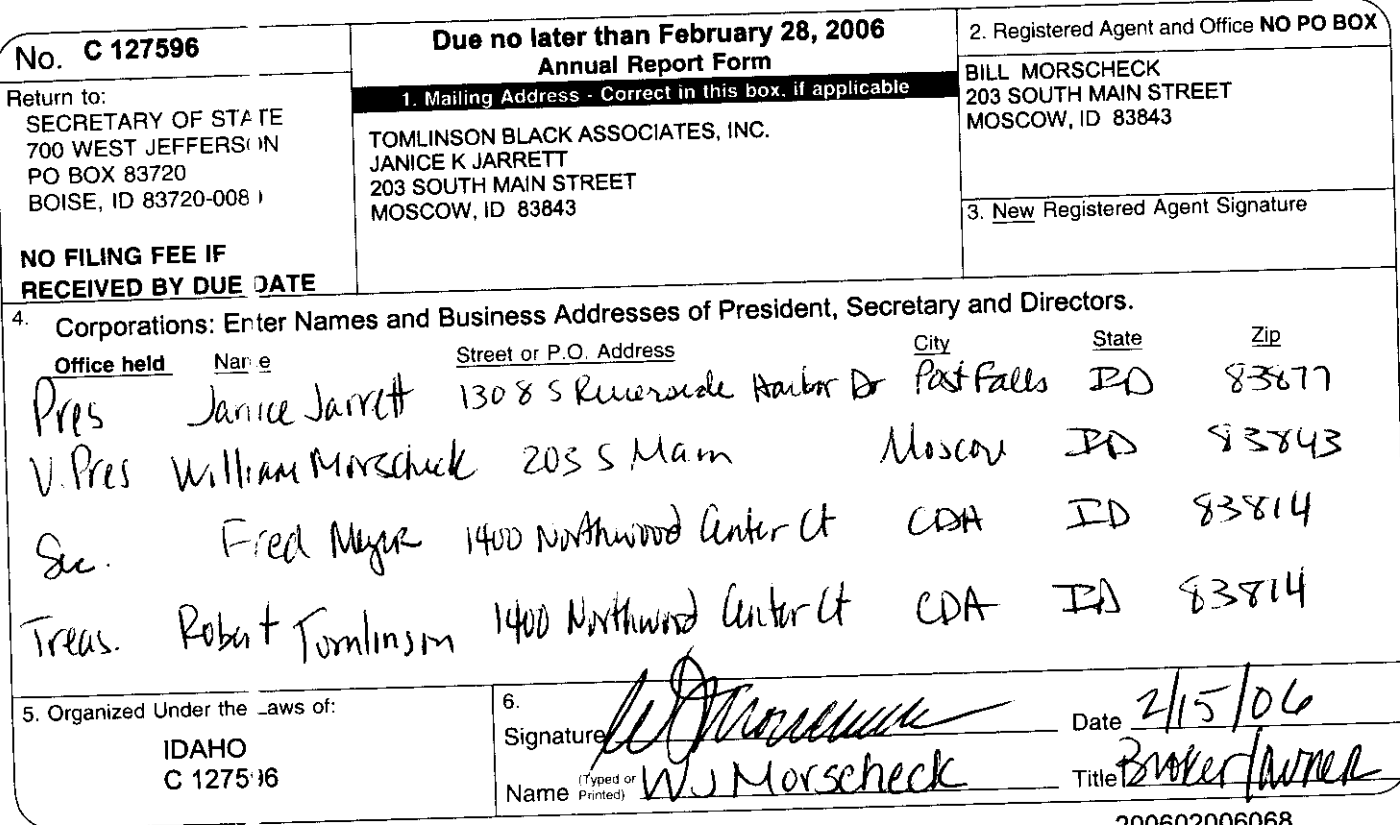 No. C 127596
Return to:
SECRETARY OF STATE
700 WEST JEFFERSON
PO BOX 83720
BOISE, ID 83720-008
NO FILING FEE IF
RECEIVED BY DUE DATE
Due no later than February 28, 2006
Annual Report Form
1. Mailing Address - Correct in this box, if applicable
TOMLINSON BLACK ASSOCIATES, INC.
JANICE K JARRETT
203 SOUTH MAIN STREET
MOSCOW, ID 83843
2. Registered Agent and Office NO PO BOX
BILL MORSCHECK
203 SOUTH MAIN STREET
MOSCOW, ID 83843
3. New Registered Agent Signature
4. Corporations: Enter Names and Business Addresses of President, Secretary and Directors.
Office held Name Street or P.O. Address City State Zip
Pres Janice Jarrett 1308 S Riverside Harbor Dr Post Falls ID 83877
V. Pres William Morscheck 203 S Main Moscow ID 83843
Sec. Fred Meyer 1400 Northwood Center Ct CDA ID 83814
Treas. Robert Tomlinson 1400 Northwood Center Ct CDA ID 83814
5. Organized Under the Laws of:
IDAHO
C 127596
6.
Signature WJ Morscheck Date 2/15/06
Name (Typed or Printed) WJ Morscheck Title Broker/owner
200602006068